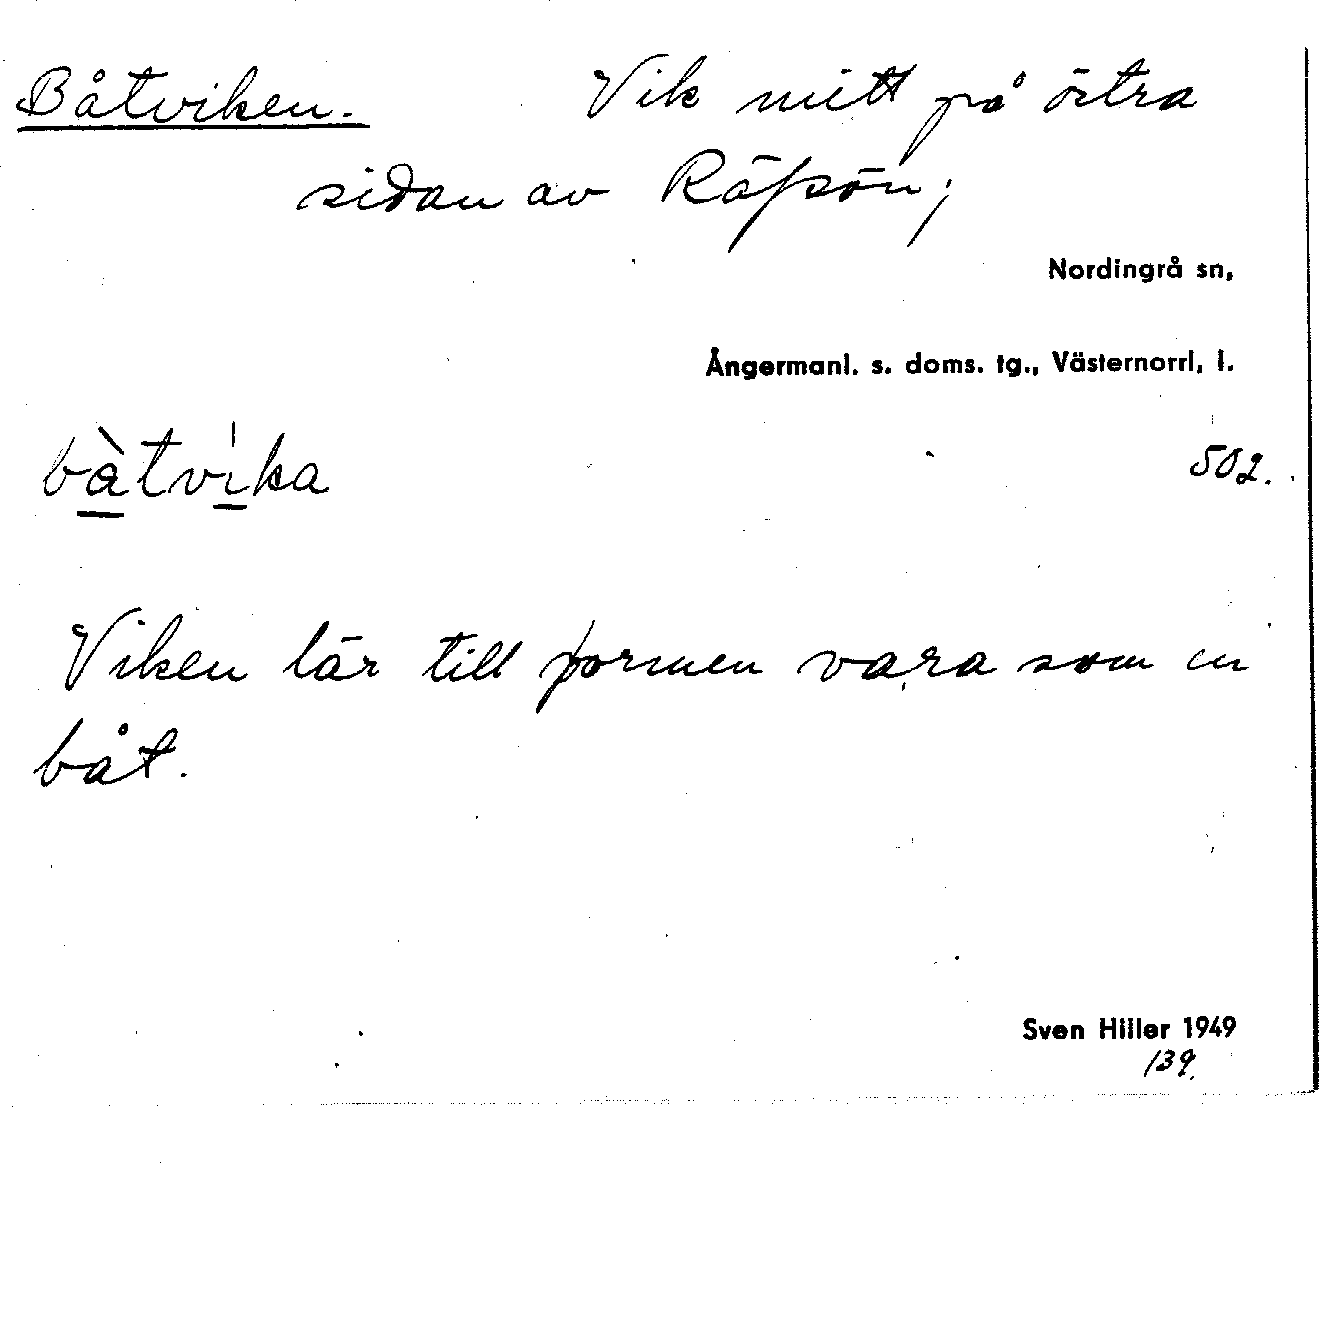 Båtviken. Vik mitt på östra
sidan av Räfsön;
Nordingrå sn,
Ångermanl. s. doms. tg., Västernorrl, l.
bàtvika
502.
Viken lär till formen vara som en
båt.
Sven Hiller 1949
139.